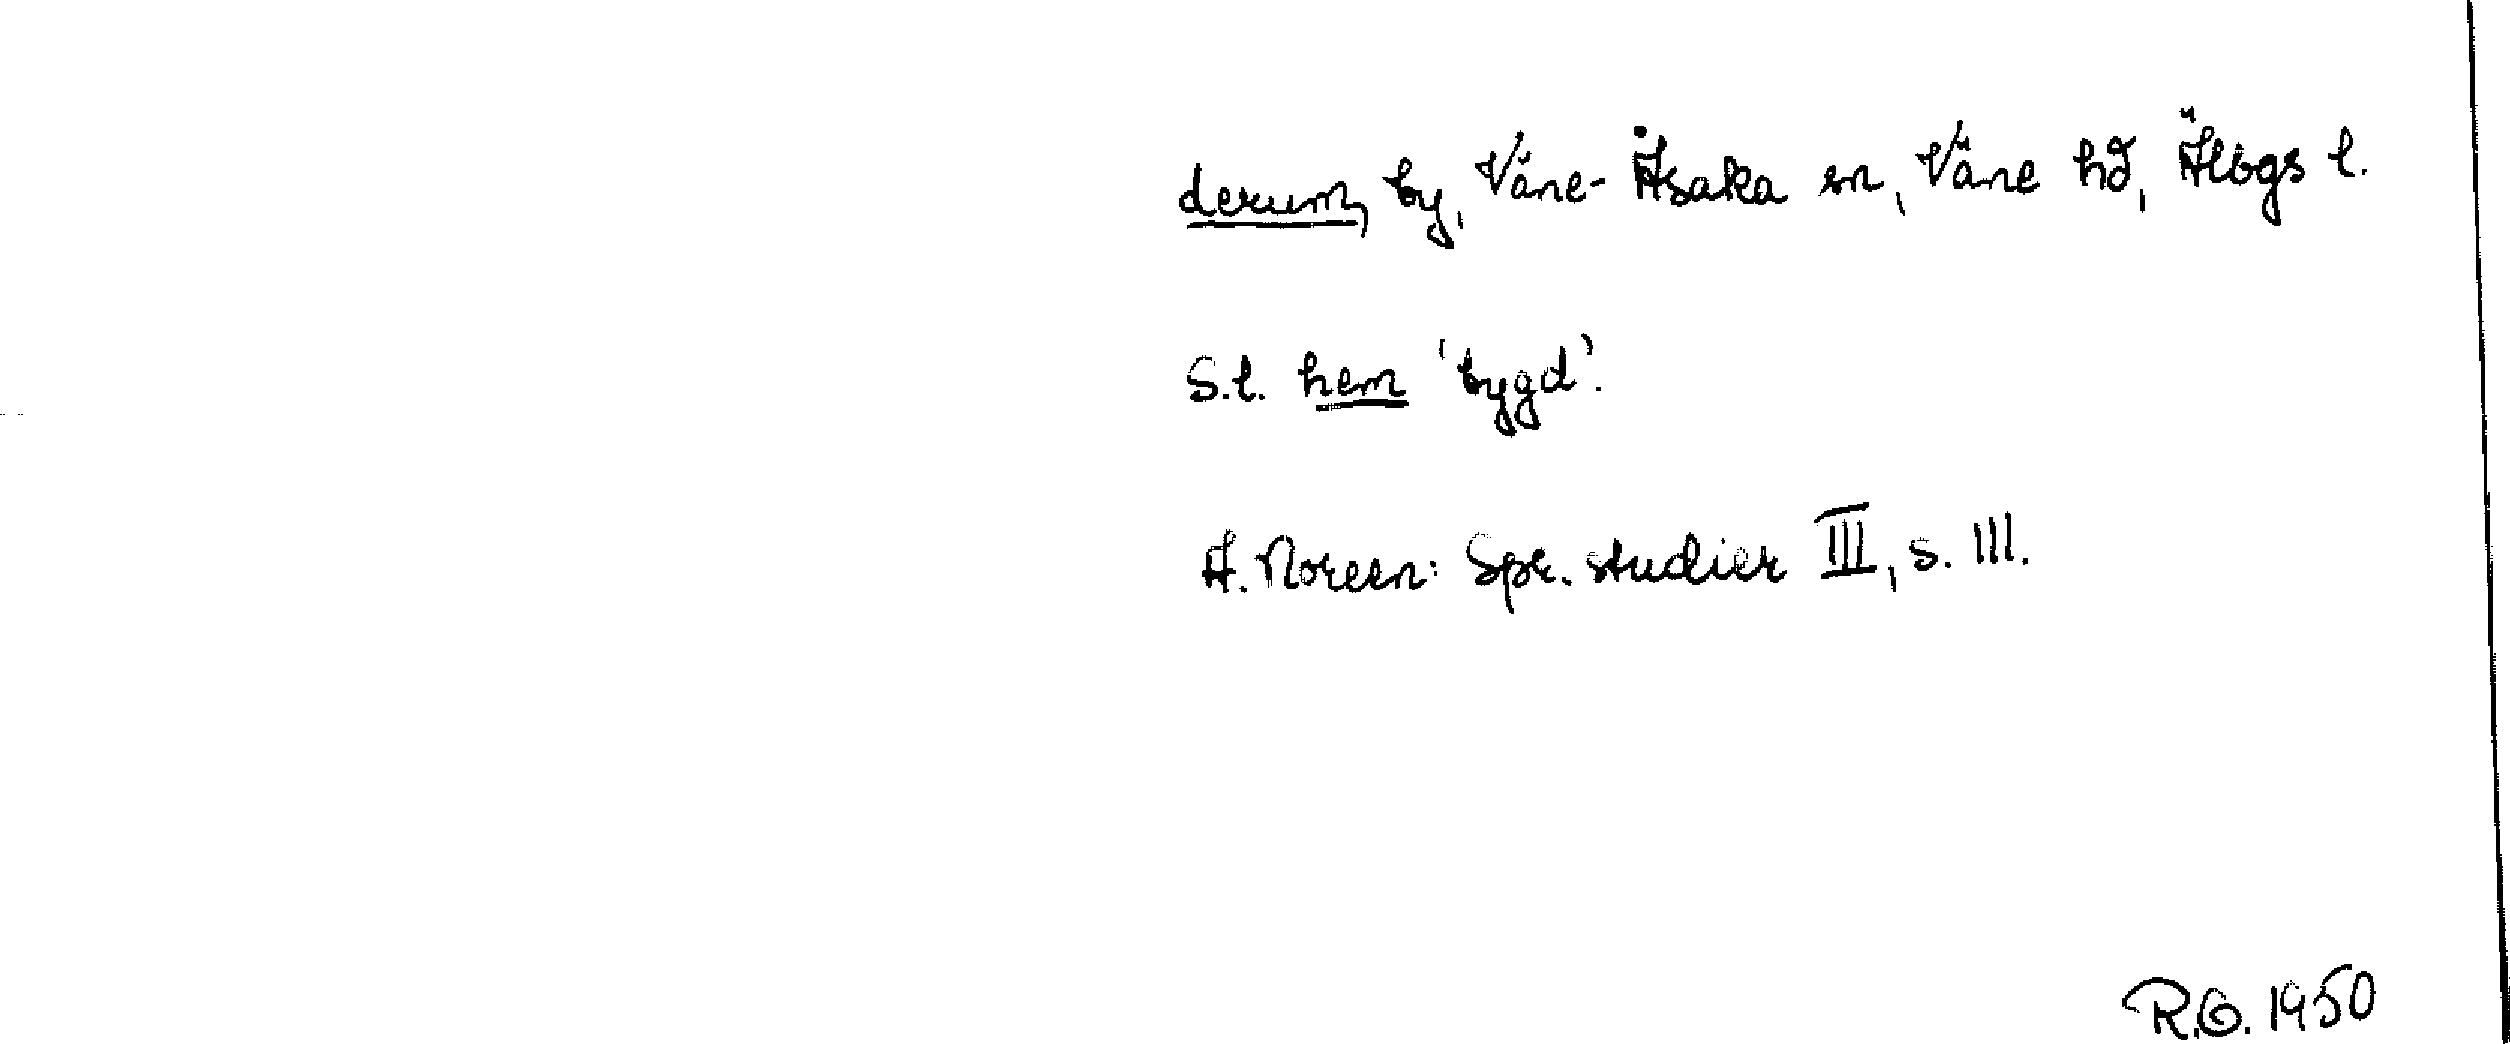 derum, by, Väne-Åsaka sn, Väne hd, Älvbgs l.
S.l. hem 'bygd'.
A. Noreen: Spr. studier III, s. 111.
R.G. 1950